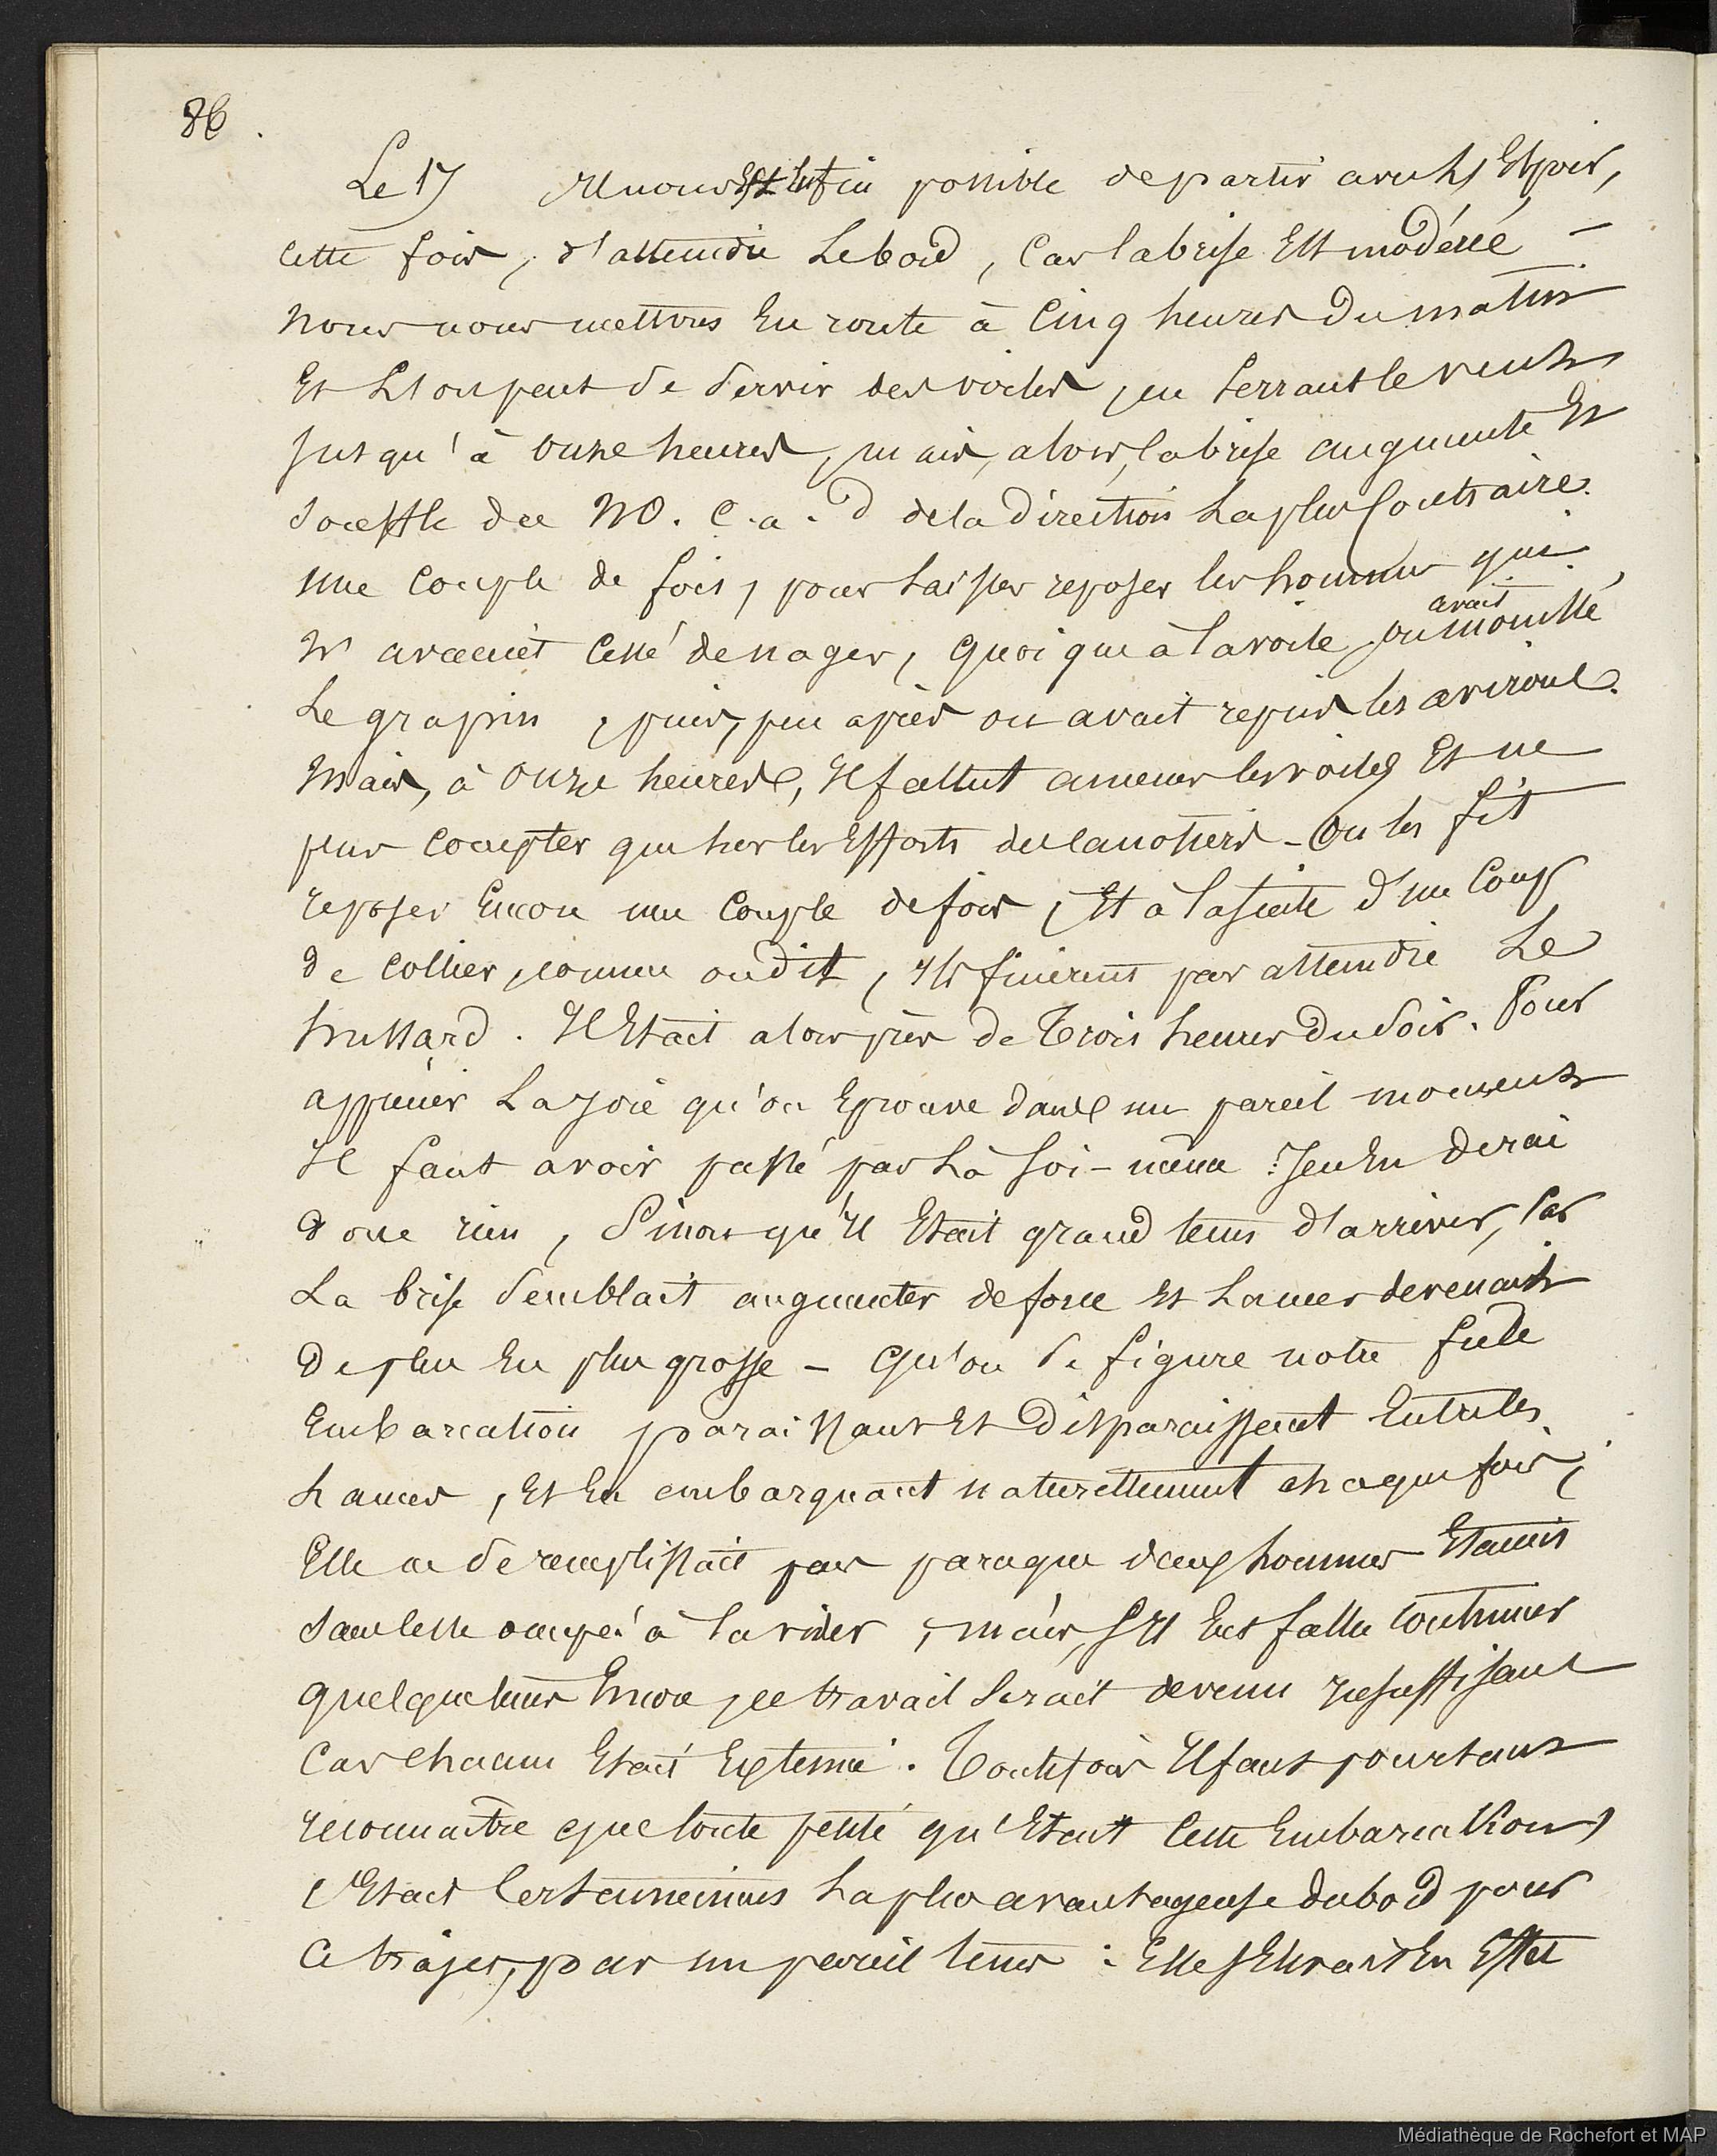 86.
Le 17 Il nous est Enfin possible de partir avec Espoir,
cette fois, d'atteindre Le bord, Car la brise Est modérée –
nous nous mettons En route à Cinq heures du matin
Et L'on peut se servir des voiles, en serrant le vent
jusqu'à onze heures, mais, alors, la brise augmente Et
souffle du NO. C. a. d de la direction La plus Contraire.
une couple de fois, pour Laisser reposer les hommes qui
n'avaient Cessé de nager, quoique à la voile, on avait mouillé
Le grapin, puis, peu après on avait repris les avirons.
Mais, à onze heures, Il fallut amener les voiles Et ne
plus compter que sur les Efforts des canotiers – On les fit
reposer Encore une Couple de fois, Et à la suite d'un Coup
de collier, comme on dit, Ils finirent par atteindre Le
hussard. Il Etait alors près de Trois heures du soir. Pour
apprécier La joie qu'on Eprouve dans un pareil moment
Il faut avoir passé par Là soi-même : Je n'En dirai
donc rien, Sinon qu'Il Etait grand tems d'arriver, Car
La brise semblait augmenter de force Et La mer devenait
de plus En plus grosse – Qu'on se figure notre frêle
Embarcation paraissant Et disparaissant Entre les
Lames, Et En embarquant naturellement chaque fois;
Elle ne se remplissait pas parceque deux hommes Etaient
sans cesse occupés à la vider, mais, s'Il Eut fallu Continuer
quelque tems Encore, ce travail serait devenu Insuffisant
Car Chacun Etait Exténué. Toutefois Il faut pourtant
reconnaître que toute petite qu'Etait Cette Embarcation,
c'Etait Certainement La plus avantageuse du bord pour
Ce trajet, par un pareil tems : Elle s'Elevait En Effet
Médiathèque de Rochefort et MAP